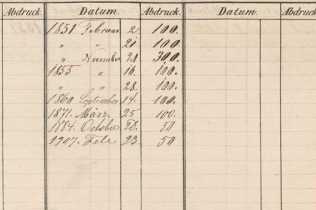 Abdruck. Datum. Abdruck. Datum. Abdruck.
1851 Februar 2. 100.
" " 21. 100.
" November 28. 300.
1855 " 16. 100.
" " 28. 100.
1860 September 14. 100.
1871. März 25. 100.
1884. October 28. 50
1907. Febr. 23. 50